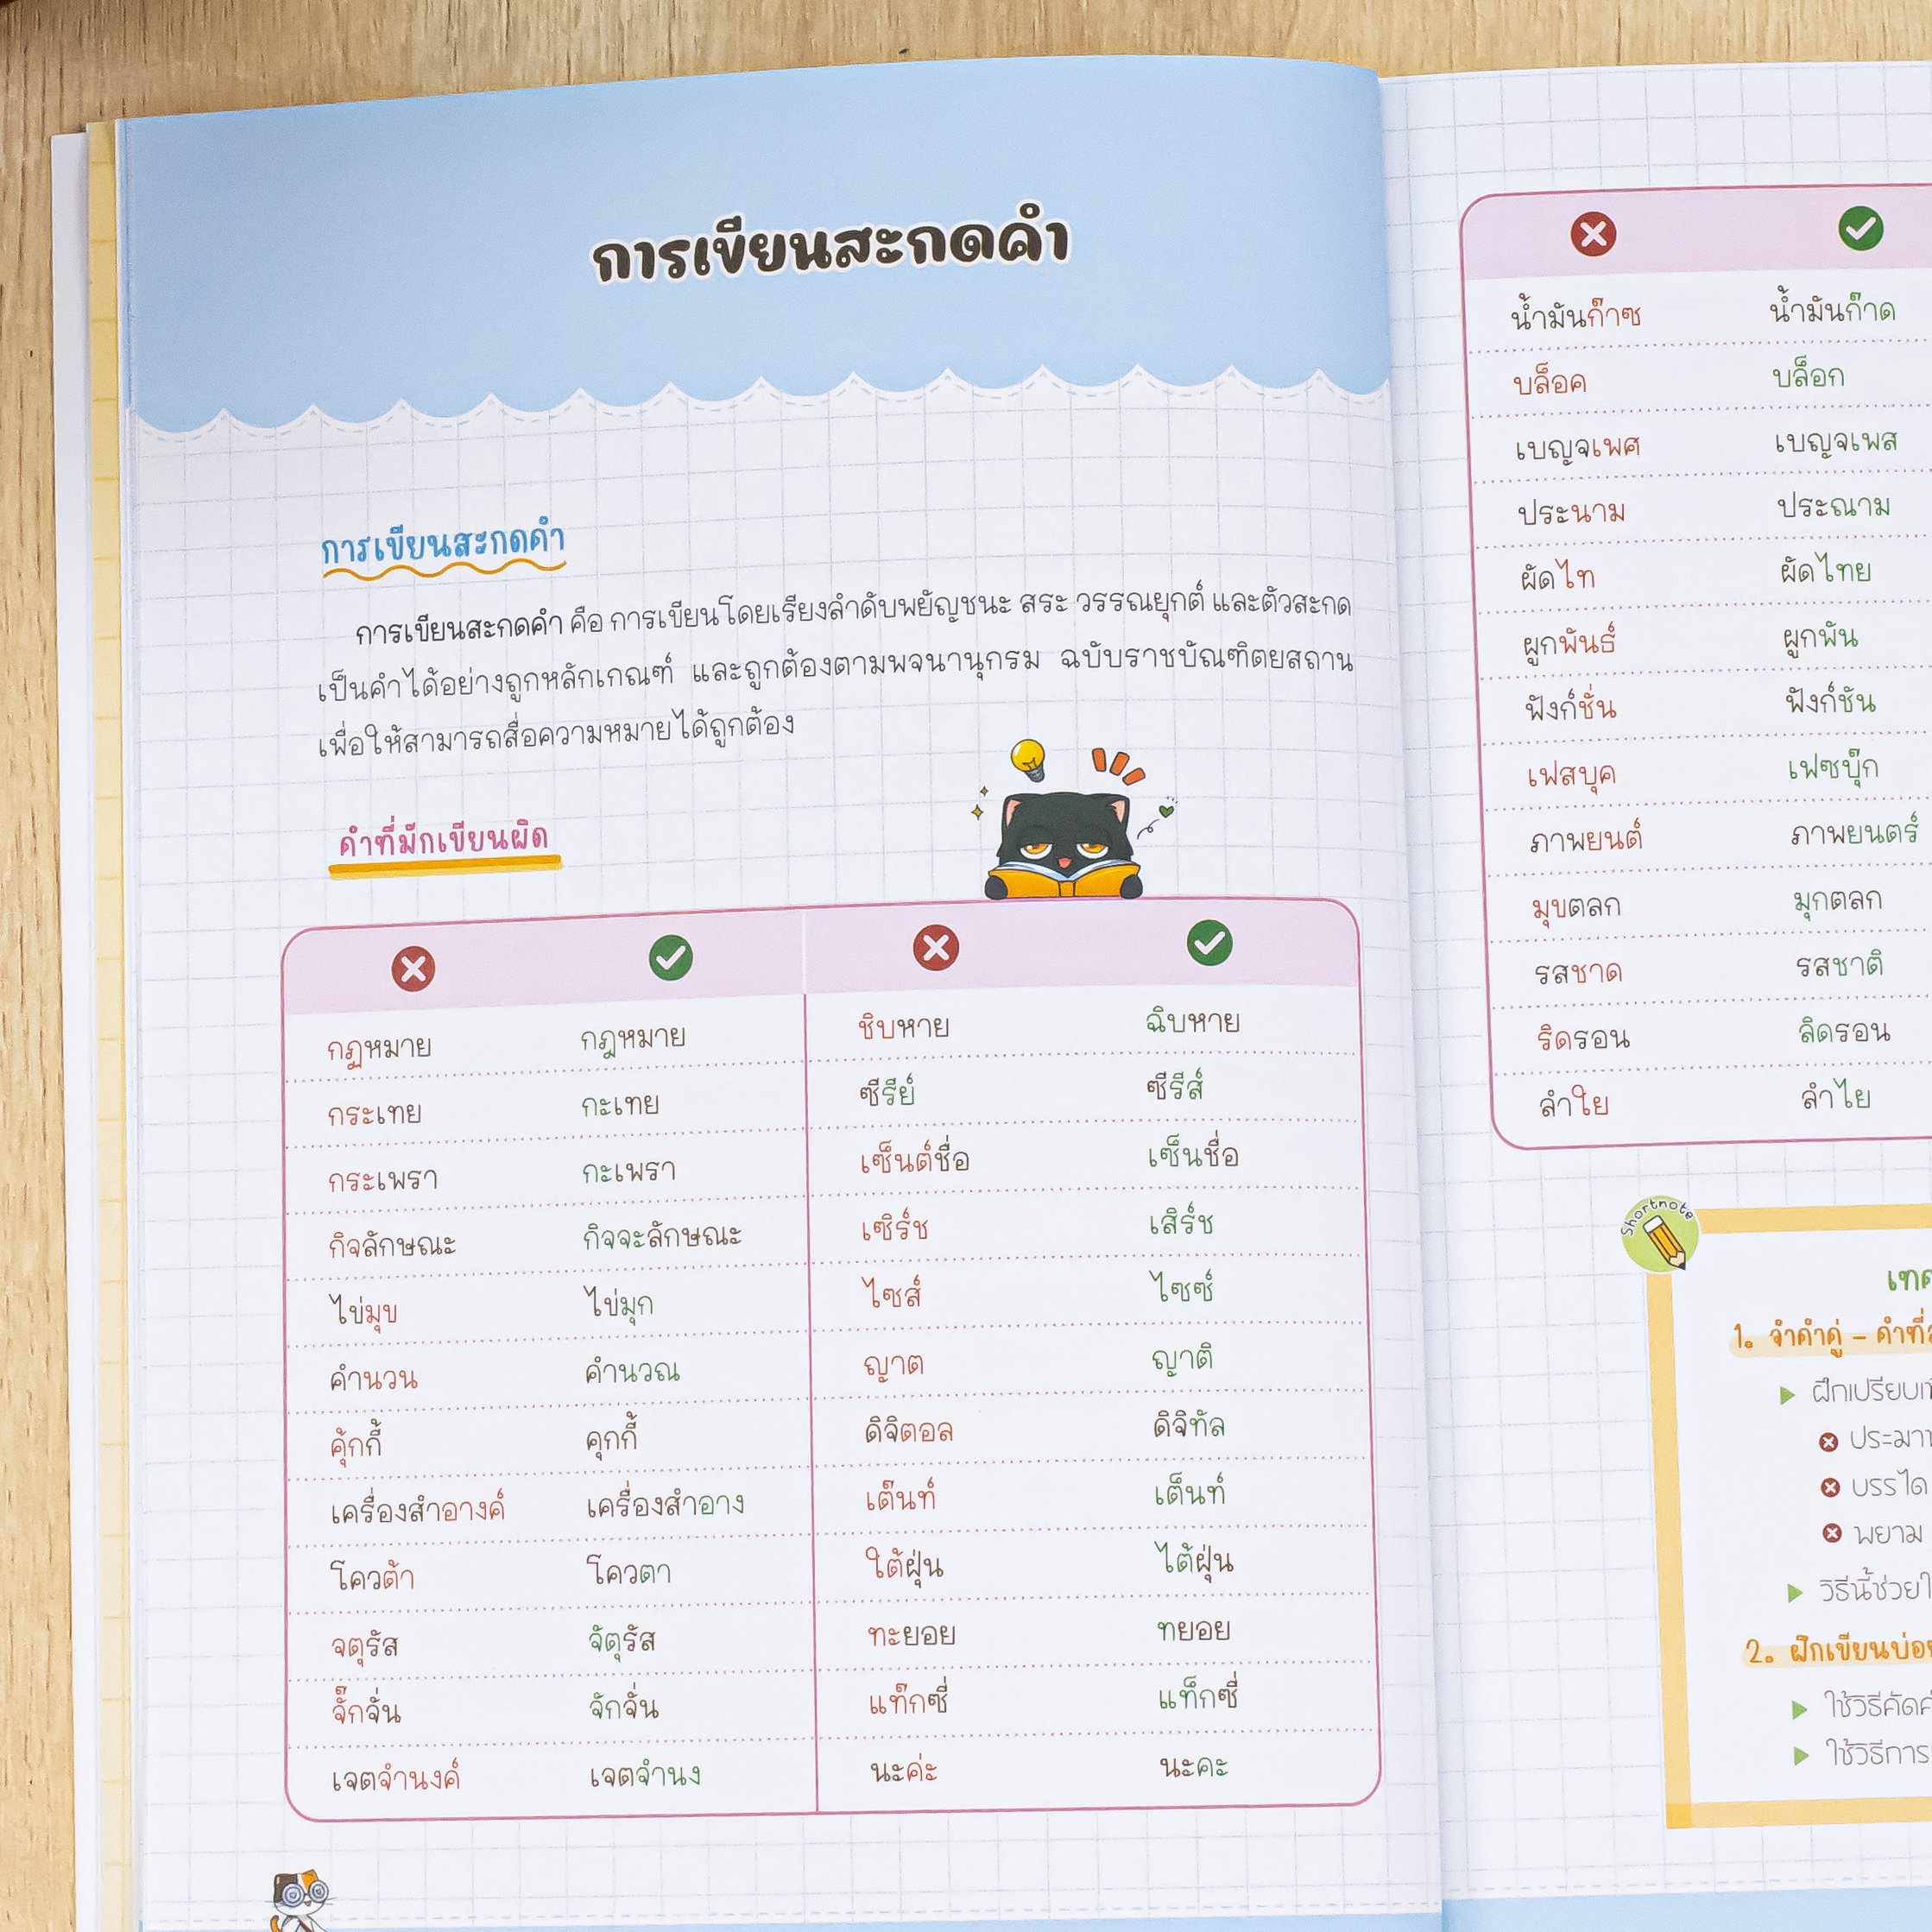 การเขียนสะกดคำ
การเขียนสะกดคำ
การเขียนสะกดคำ คือ การเขียนโดยเรียงลำดับพยัญชนะ สระ วรรณยุกต์ และตัวสะกด
เป็นคำได้อย่างถูกหลักเกณฑ์ และถูกต้องตามพจนานุกรม ฉบับราชบัณฑิตยสถาน
เพื่อให้สามารถสื่อความหมายได้ถูกต้อง
คำที่มักเขียนผิด
กฏหมาย กฎหมาย ชิบหาย ฉิบหาย
กระเทย กะเทย ซีรีย์ ซีรีส์
กระเพรา กะเพรา เซ็นต์ชื่อ เซ็นชื่อ
กิจลักษณะ กิจจะลักษณะ เซิร์ช เสิร์ช
ไข่มุข ไข่มุก ไซส์ ไซซ์
คำนวน คำนวณ ญาต ญาติ
คุ้กกี้ คุกกี้ ดิจิตอล ดิจิทัล
เครื่องสำอางค์ เครื่องสำอาง เต๊นท์ เต็นท์
โควต้า โควตา ใต้ฝุ่น ไต้ฝุ่น
จตุรัส จัตุรัส ทะยอย ทยอย
จั๊กจั่น จักจั่น แท๊กซี่ แท็กซี่
เจตจำนงค์ เจตจำนง นะค่ะ นะคะ
น้ำมันก๊าซ น้ำมันก๊าด
บล็อค บล็อก
เบญจเพศ เบญจเพส
ประนาม ประณาม
ผัดไท ผัดไทย
ผูกพันธ์ ผูกพัน
ฟังก์ชั่น ฟังก์ชัน
เฟสบุค เฟซบุ๊ก
ภาพยนต์ ภาพยนตร์
มุขตลก มุกตลก
รสชาด รสชาติ
ริดรอน ลิดรอน
ลำใย ลำไย
Shortnote
1. จำคำคู่ –
ฝึกเปรียบ
บรรได
พยาม
วิธีนี้ช่วย
2. ฝึกเขียน
ใช้วิธีคัด
ใช้วิธีการ